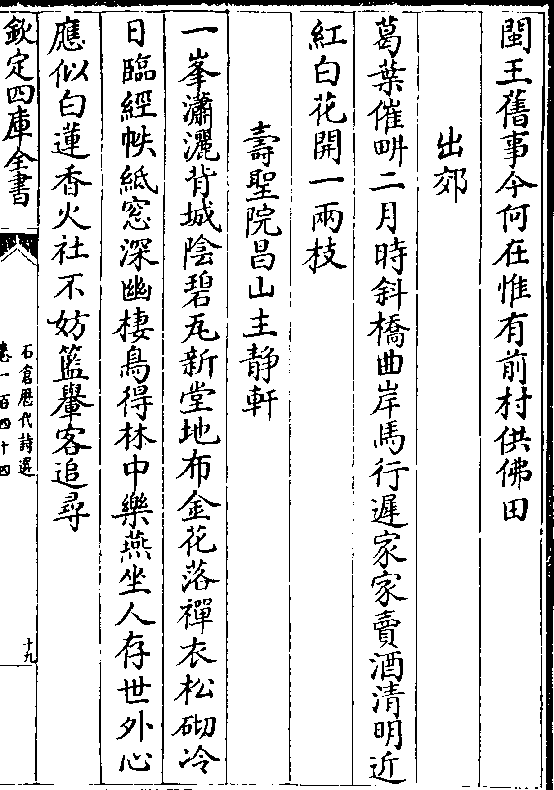 閩王舊事今何在惟有前村供佛田
出郊
葛葉催畊二月時斜橋曲岸馬行遲家家賣酒清明近
紅白花開一兩枝
壽聖院昌山主靜軒
一峯瀟灑背城陰碧瓦新堂地布金花落禪衣松砌冷
日臨經帙紙窓深幽棲鳥得林中樂燕坐人存世外心
應似白蓮香火社不妨籃轝客追尋
欽定四庫全書
石倉歷代詩選
卷一百四十四
十九